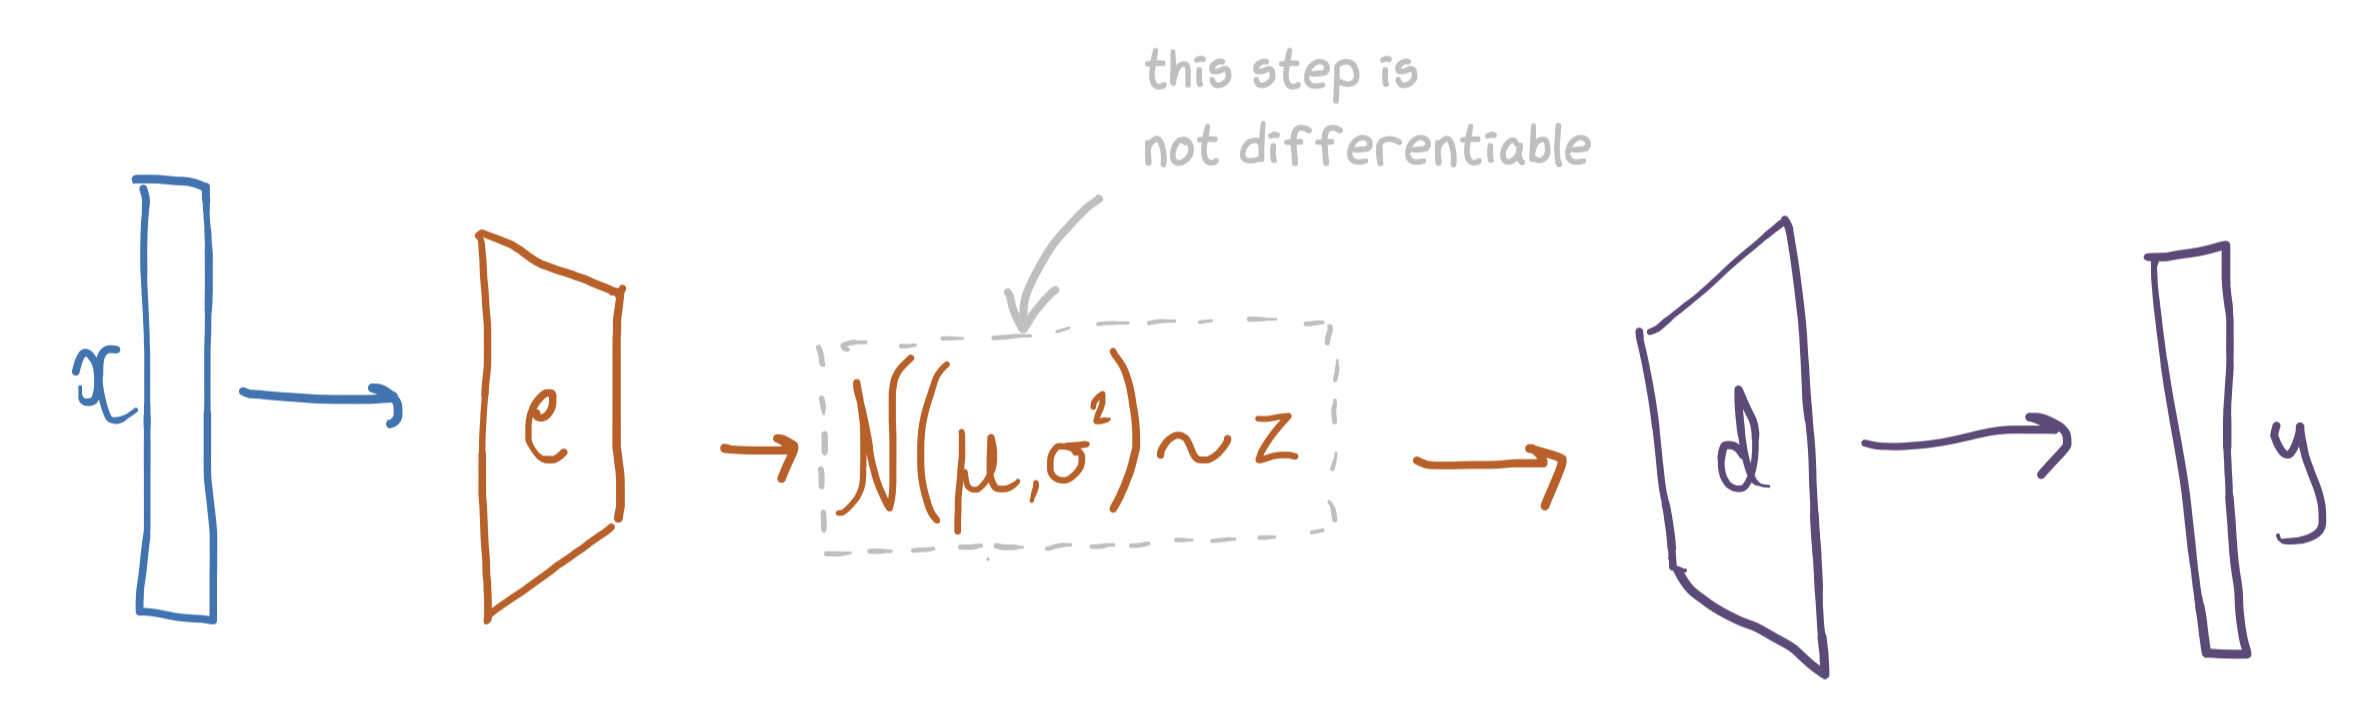 this step is
not differentiable
x
e
N(μ,σ²)~z
d
y